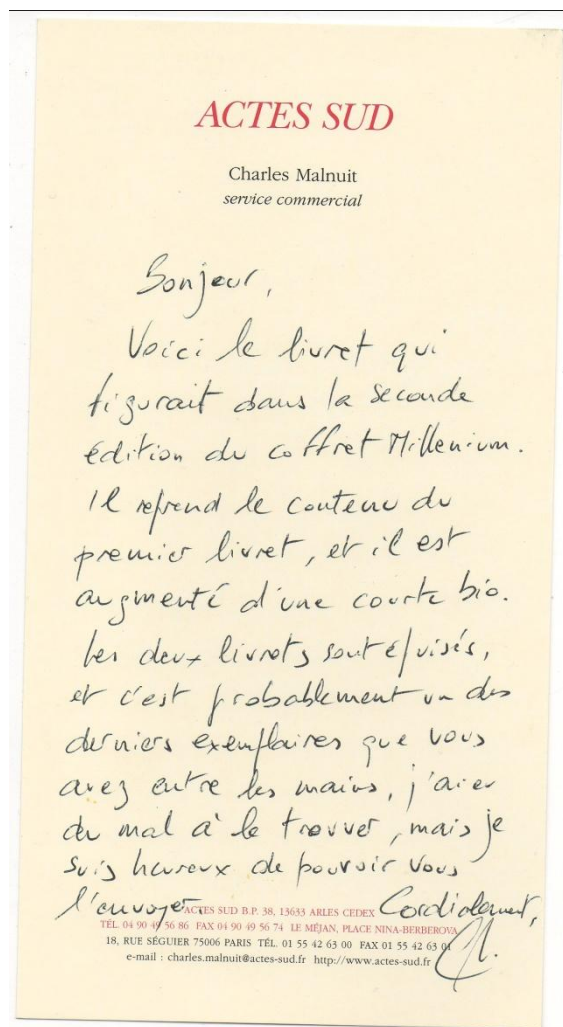 ACTES SUD
Charles Malnuit
service commercial
Bonjour,
Voici le livret qui
figurait dans la seconde
édition du coffret Millenium.
Il reprend le contenu du
premier livret, et il est
augmenté d'une courte bio.
Les deux livrets sont épuisés,
et c'est probablement un des
derniers exemplaires que vous
avez entre les mains, j'ai eu
du mal à le trouver, mais je
suis heureux de pouvoir vous
l'envoyer. Cordialement,
ACTES SUD B.P. 38, 13633 ARLES CEDEX
TÉL. 04 90 49 56 86 FAX 04 90 49 56 74 LE MÉJAN, PLACE NINA-BERBEROVA
18, RUE SÉGUIER 75006 PARIS TÉL. 01 55 42 63 00 FAX 01 55 42 63 01
e-mail : charles.malnuit@actes-sud.fr http://www.actes-sud.fr